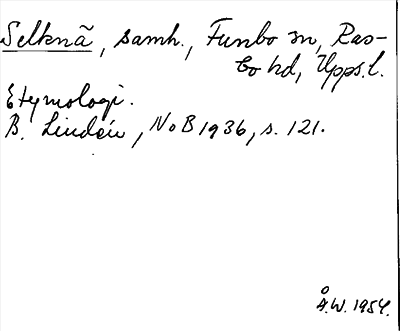 Selknä, samh., Funbo sn, Ras-
bo hd, Upps. l.
Etymologi.
B. Lindén, NoB 1936, s. 121.
Å.W. 1954.